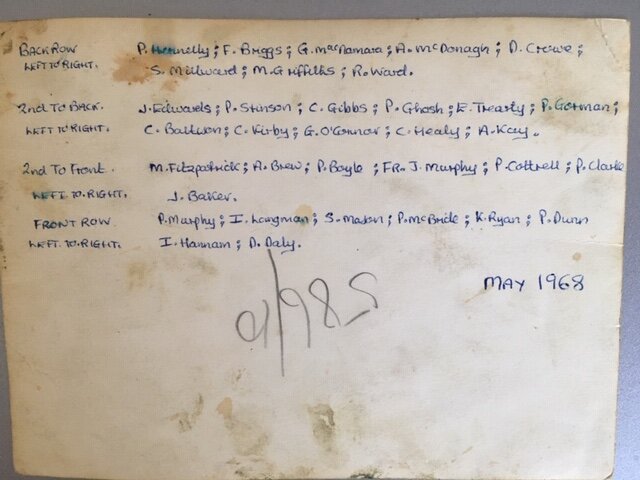 BACK ROW P. Hennelly; F. Briggs; G. MacNamara; A. McDonagh; D. Crowe;
LEFT TO RIGHT. S. Millward; M. Griffiths; R. Ward.
2nd To BACK. J. Edwards; P. Stinson; C. Gibbs; P. Ghosh; E. Trearty; P. Gorman;
LEFT TO RIGHT. C. Baldwon; C. Kirby; G. O'Connor; C. Healy; A. Kay.
2nd To Front. M. Fitzpatrick; A. Brew; P. Boyle; FR. J. Murphy; P. Cottrell; P. Clarke
LEFT TO RIGHT. J. Baker.
FRONT ROW P. Murphy; I. Langman; S. Mason; P. McBride; K. Ryan; P. Dunn
LEFT TO RIGHT. I. Hannam; D. Daly.
MAY 1968